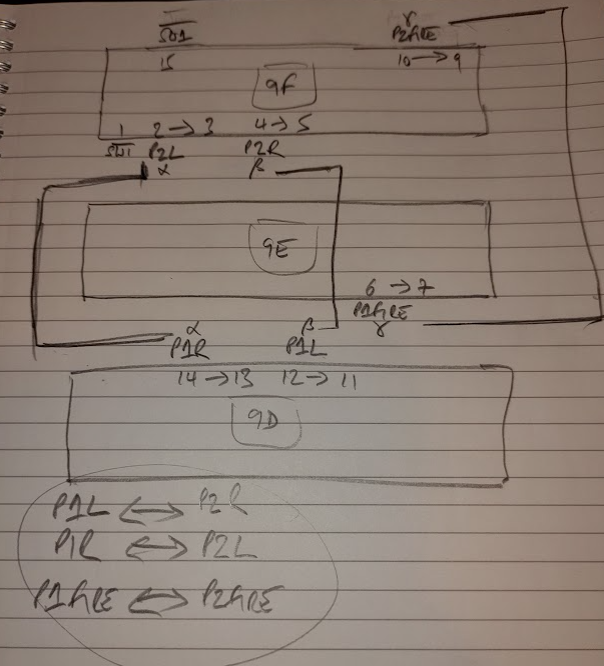 SW1 γ
P2FIRE
15 10→9
9F
1 2→3 4→5
SW1 P2L P2R
α β
9E
6→7
P1FIRE
α β γ
P1R P1L
14→13 12→11
9D
P1L ↔ P2R
P1R ↔ P2L
P1FIRE ↔ P2FIRE